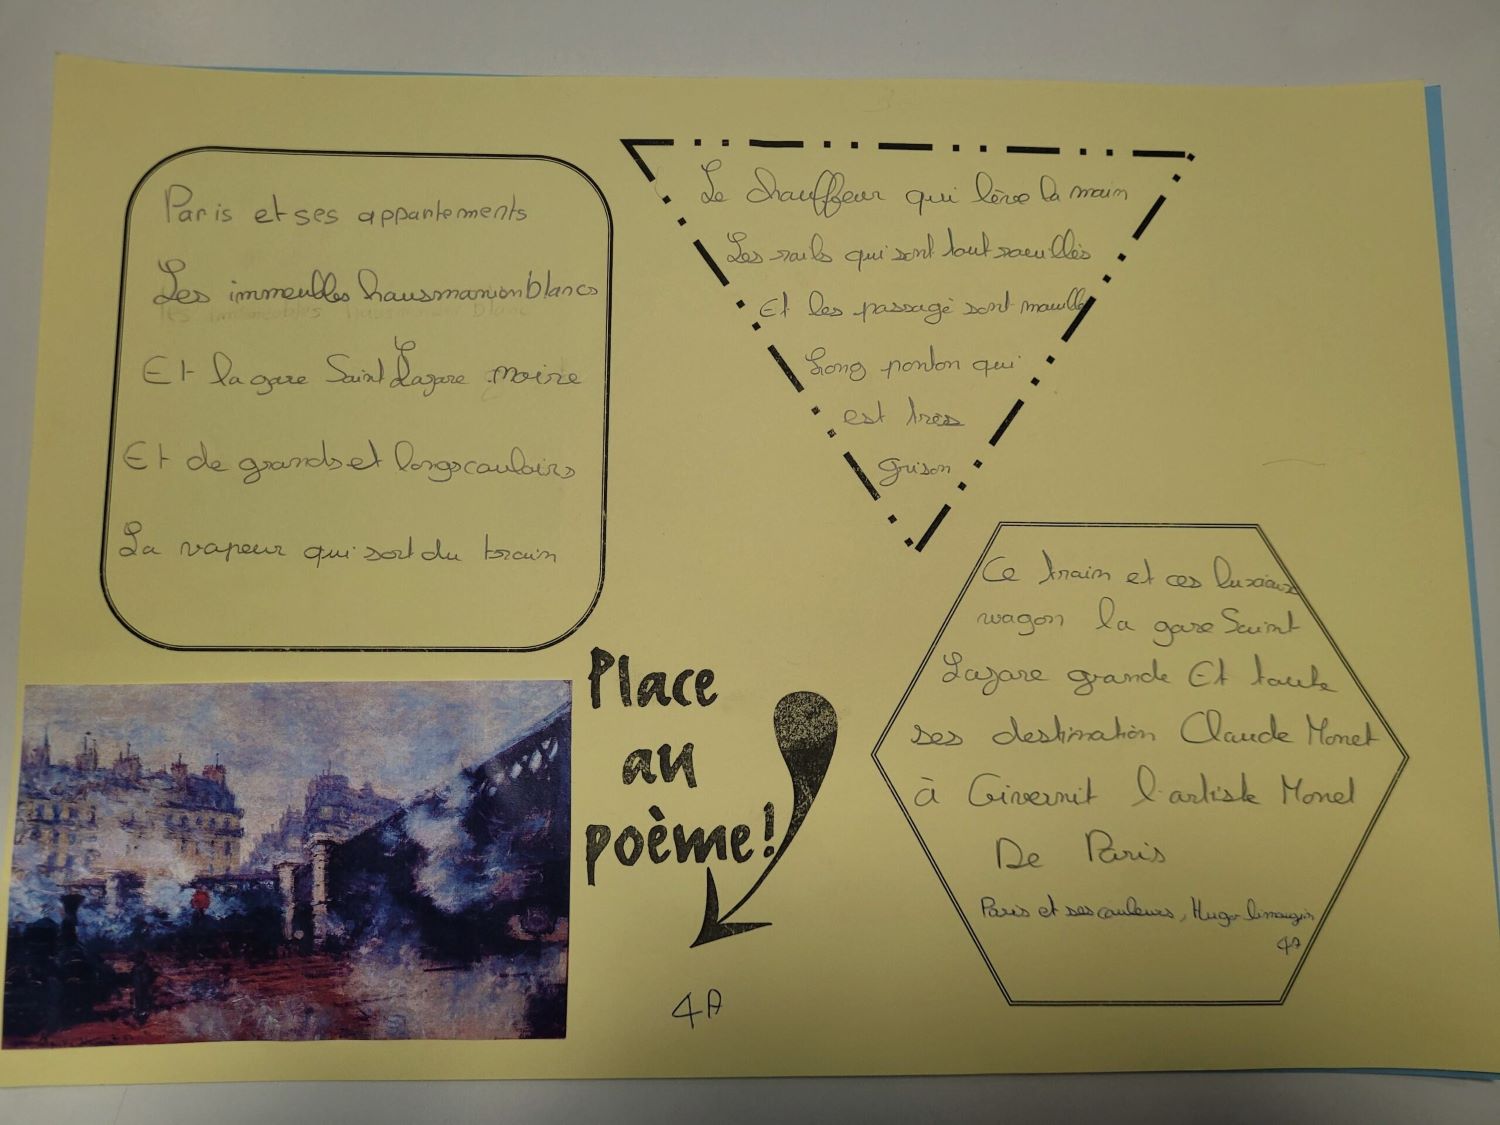 Paris et ses appartements
Les immeubles hausmanion blancs
Et la gare Saint Lazare noire
Et de grands et longs couloirs
La vapeur qui sort du train
Le chauffeur qui lève la main
Les rails qui sont tout rouillés
Et les passagé sont mouillé
Long ponton qui
est très
grison
Place
au
poème!
4A
Ce train et ces luxieux
wagon la gare Saint
Lazare grande Et toute
ses destination Claude Monet
à Givernit l'artiste Monet
De Paris
Paris et ses couleurs, Hugo limougin
4A